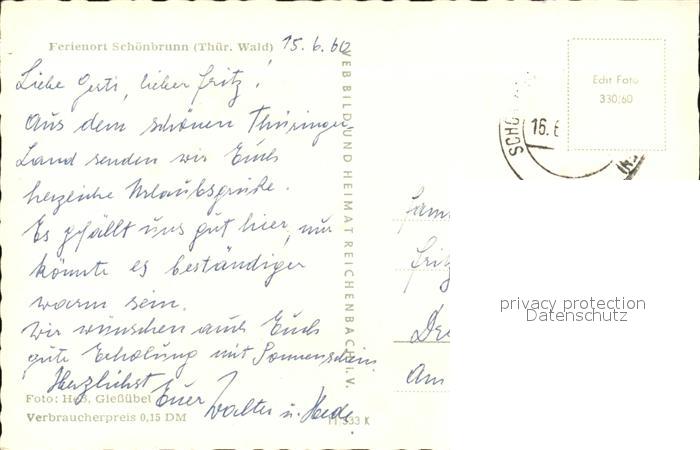 Ferienort Schönbrunn (Thür. Wald) 15.6.60
Liebe Gerti, lieber Fritz!
Aus dem schönen Thüringer
Land senden wir Euch
herzliche Urlaubsgrüße.
Es gefällt uns gut hier, nur
könnte es beständiger
warm sein.
Wir wünschen auch Euch
gute Erholung mit Sonnenschein.
Herzlichst
Euer Walter u. Hede.
Foto: Heß, Gießübel
Verbraucherpreis 0,15 DM
VEB BILD UND HEIMAT REICHENBACH I. V.
Echt Foto
330/60
16.6
Fam
Fritz
Dre
Am
privacy protection
Datenschutz